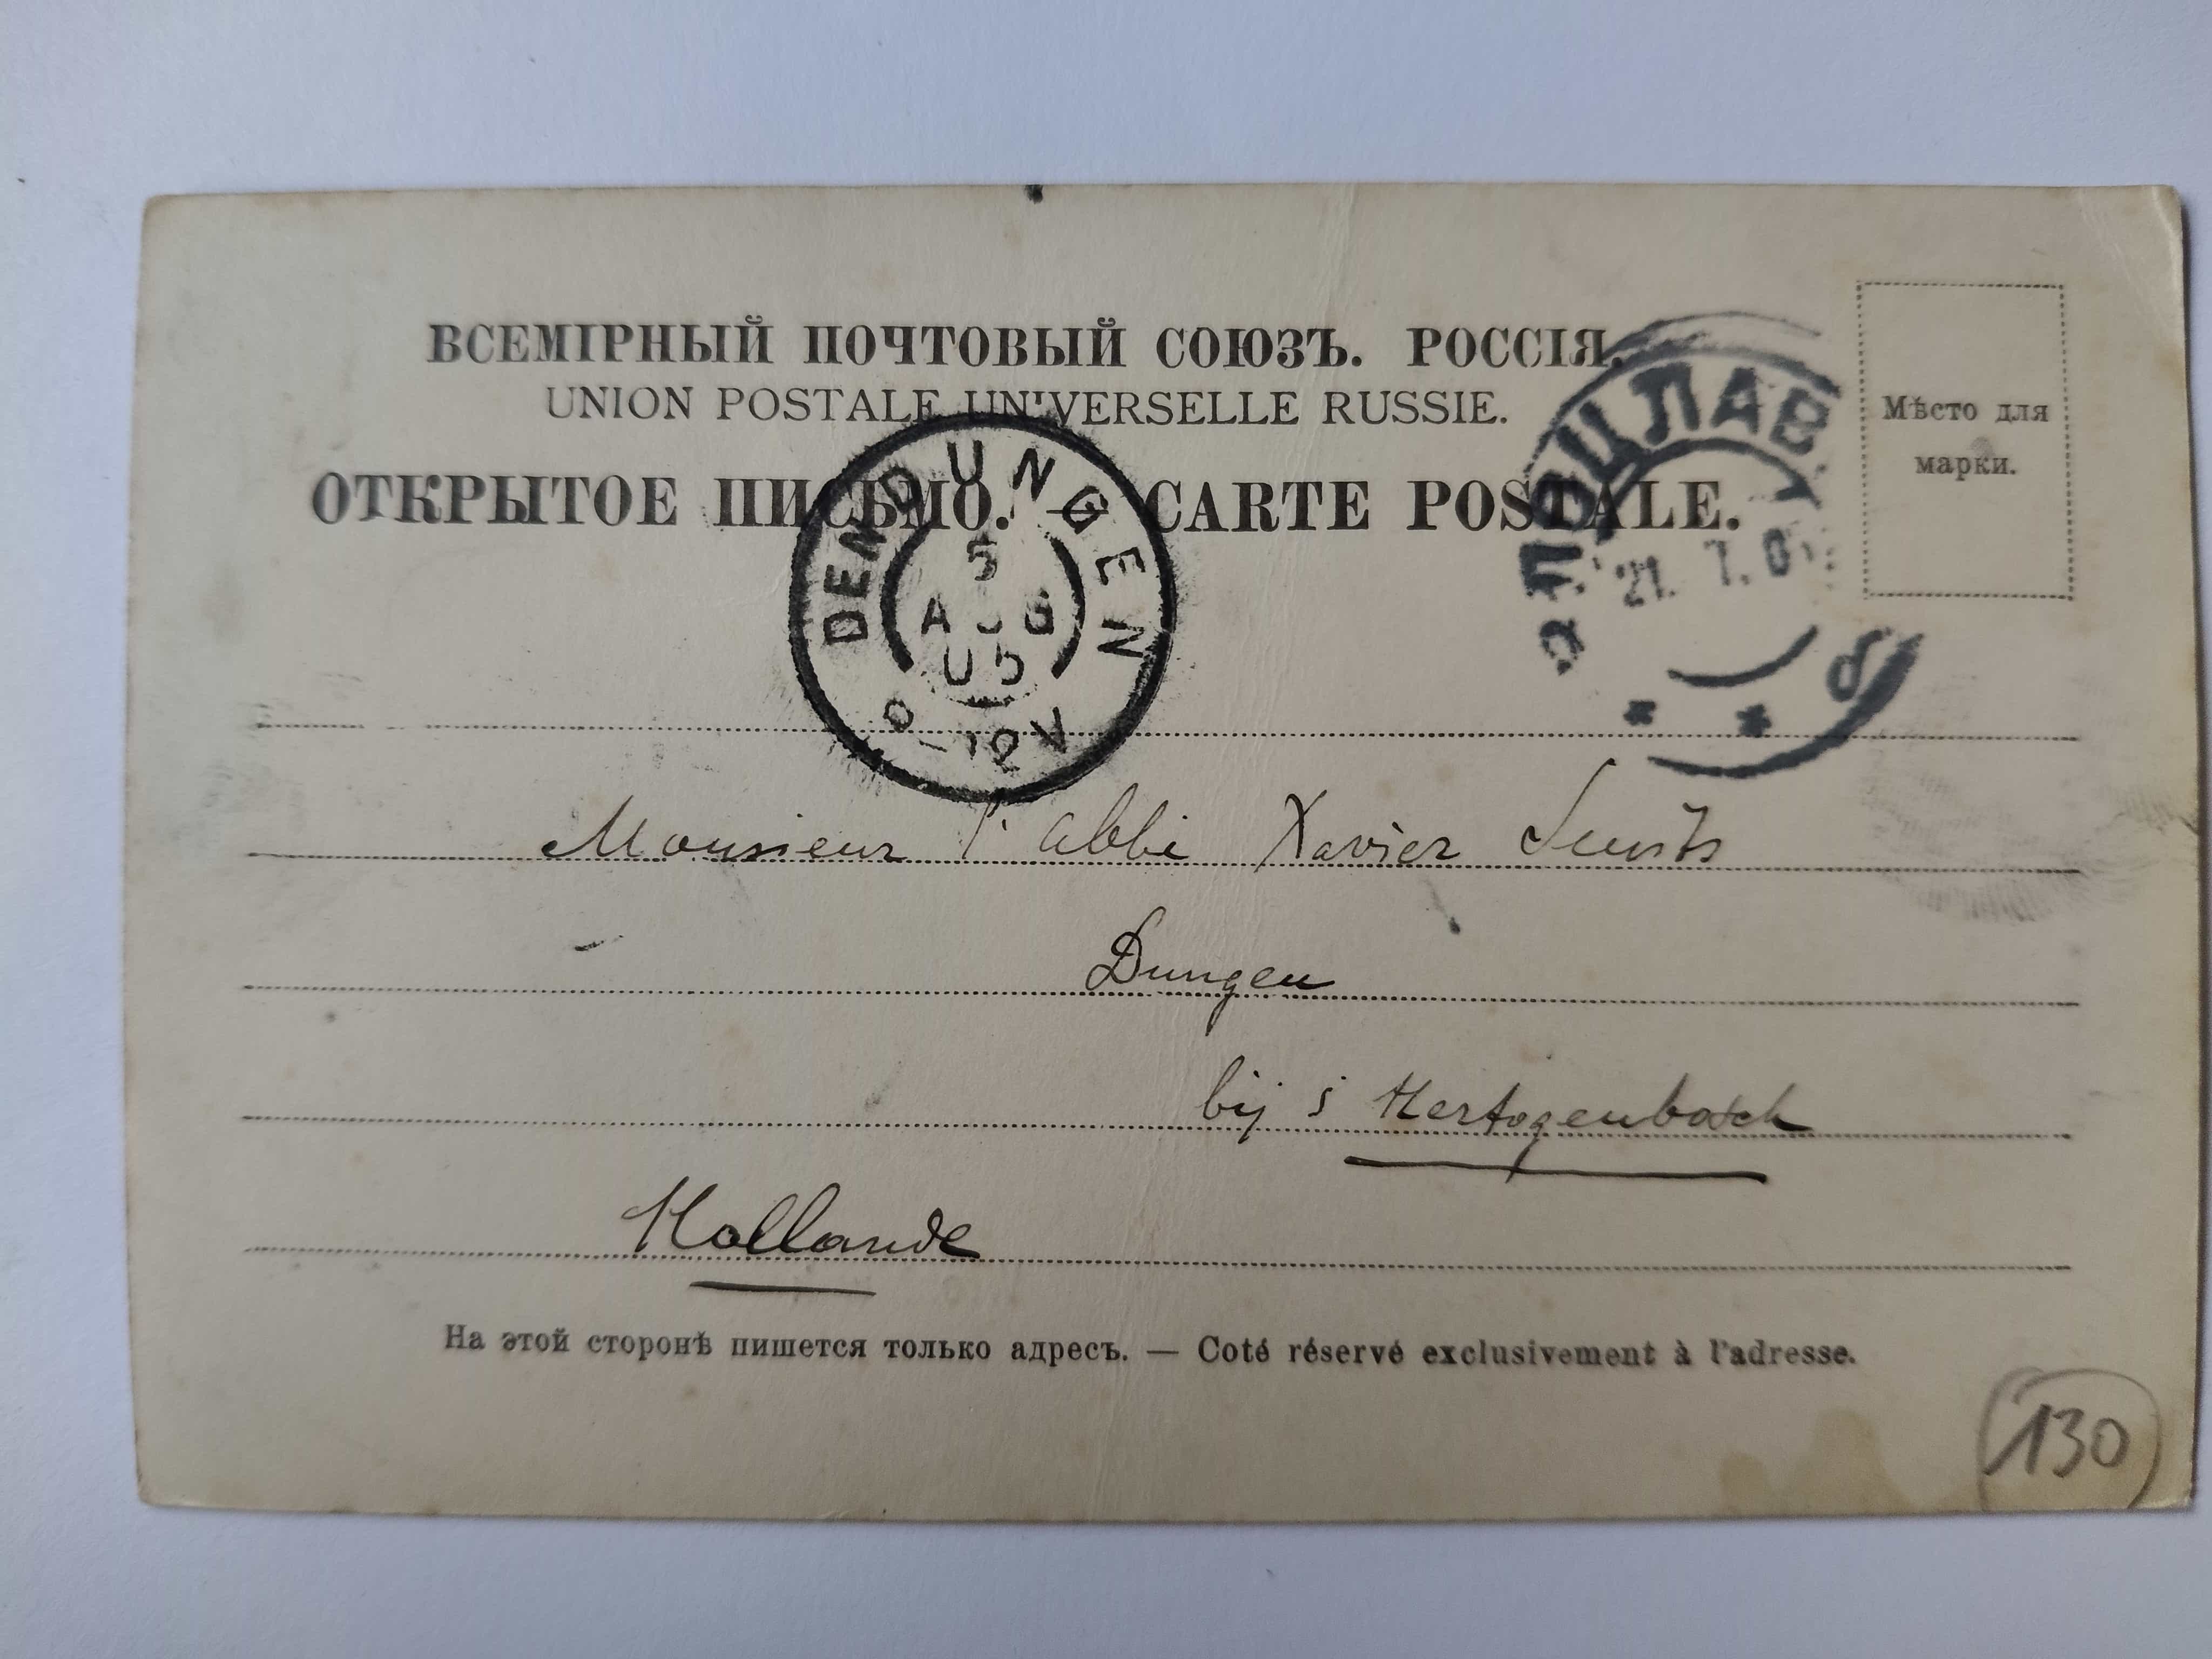 ВСЕМІРНЫЙ ПОЧТОВЫЙ СОЮЗЪ. РОССІЯ.
UNION POSTALE UNIVERSELLE RUSSIE.
ОТКРЫТОЕ ПИСЬМО. — CARTE POSTALE.
Мѣсто для
марки.
DEN DUNGEN
5
AUG
05
-12V
ЛОЦЛАВ
21. 7. 0
Monsieur l'abbé Xavier
Dungen
bij s Hertogenbosch
Hollande
На этой сторонѣ пишется только адресъ. — Coté réservé exclusivement à l'adresse.
130